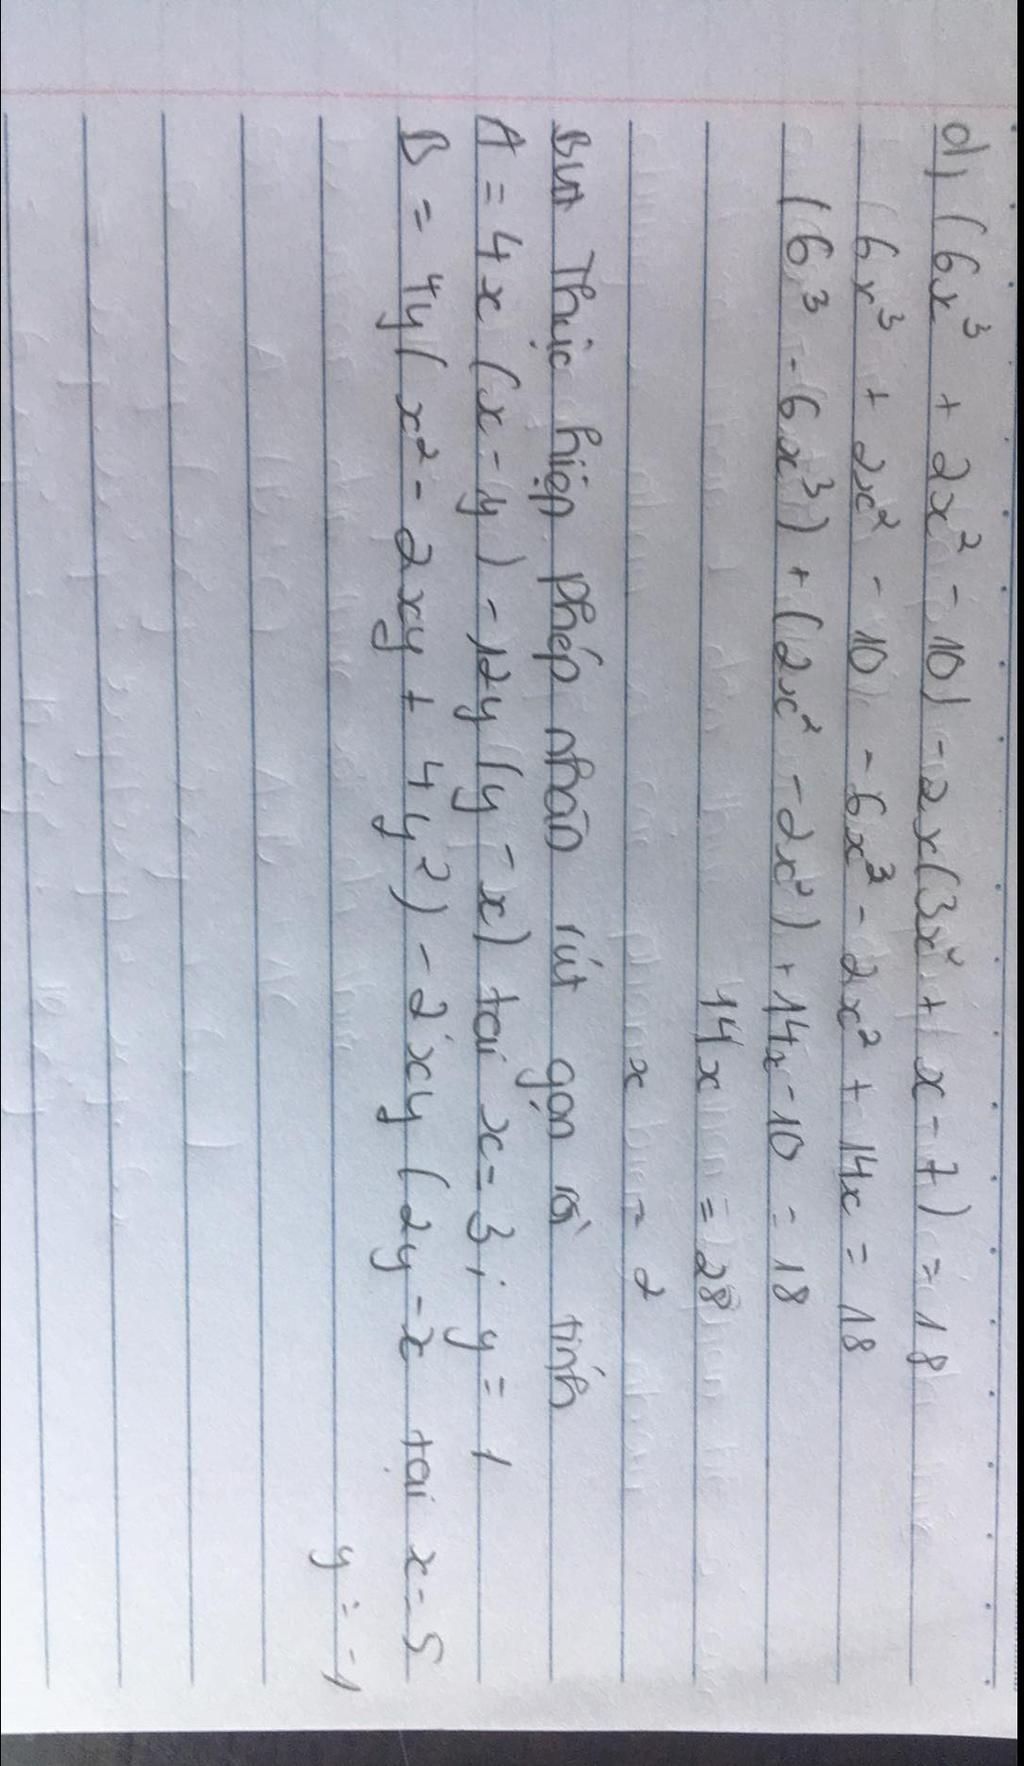 d) (6x³ + 2x² - 10) - 2x(3x² + x - 7) = 18
6x³ + 2x² - 10 - 6x³ - 2x² + 14x = 18
(6³ - 6x³) + (2x² - 2x²) + 14x - 10 = 18
14x = 28
x = 2
Thực hiện phép nhân rút gọn rồi tính
A = 4x (x - y) - 12y (y - x) tại x = 3; y = 1
B = 4y( x² - 2xy + 4y²) - 2xy (2y - x tại x = 5
y = -1